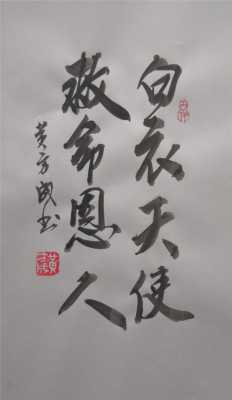 白衣天使
救命恩人
黄方成书